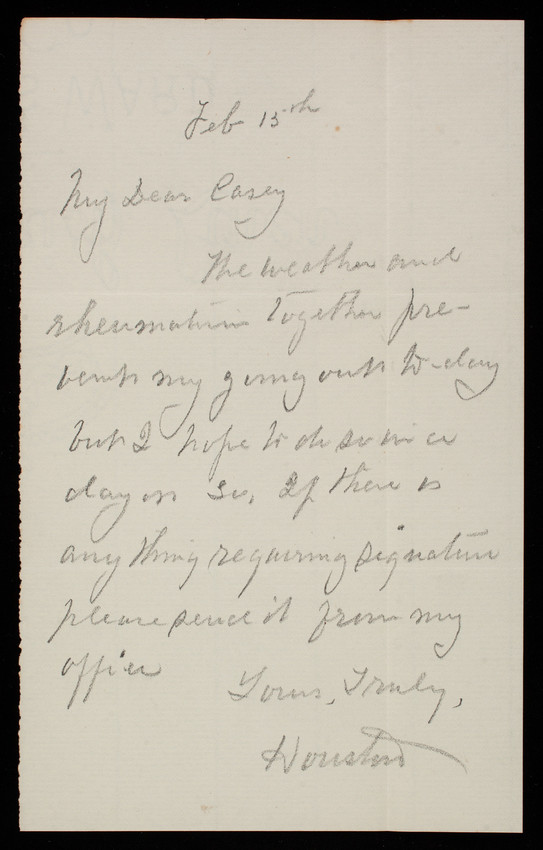 Feb 15th
My Dear Casey
The weather and
rheumatism together pre-
vents my going out to-day
but I hope to do so in a
day or so, If there is
any thing requiring signature
please send it from my
office
Yours, Truly,
Houston